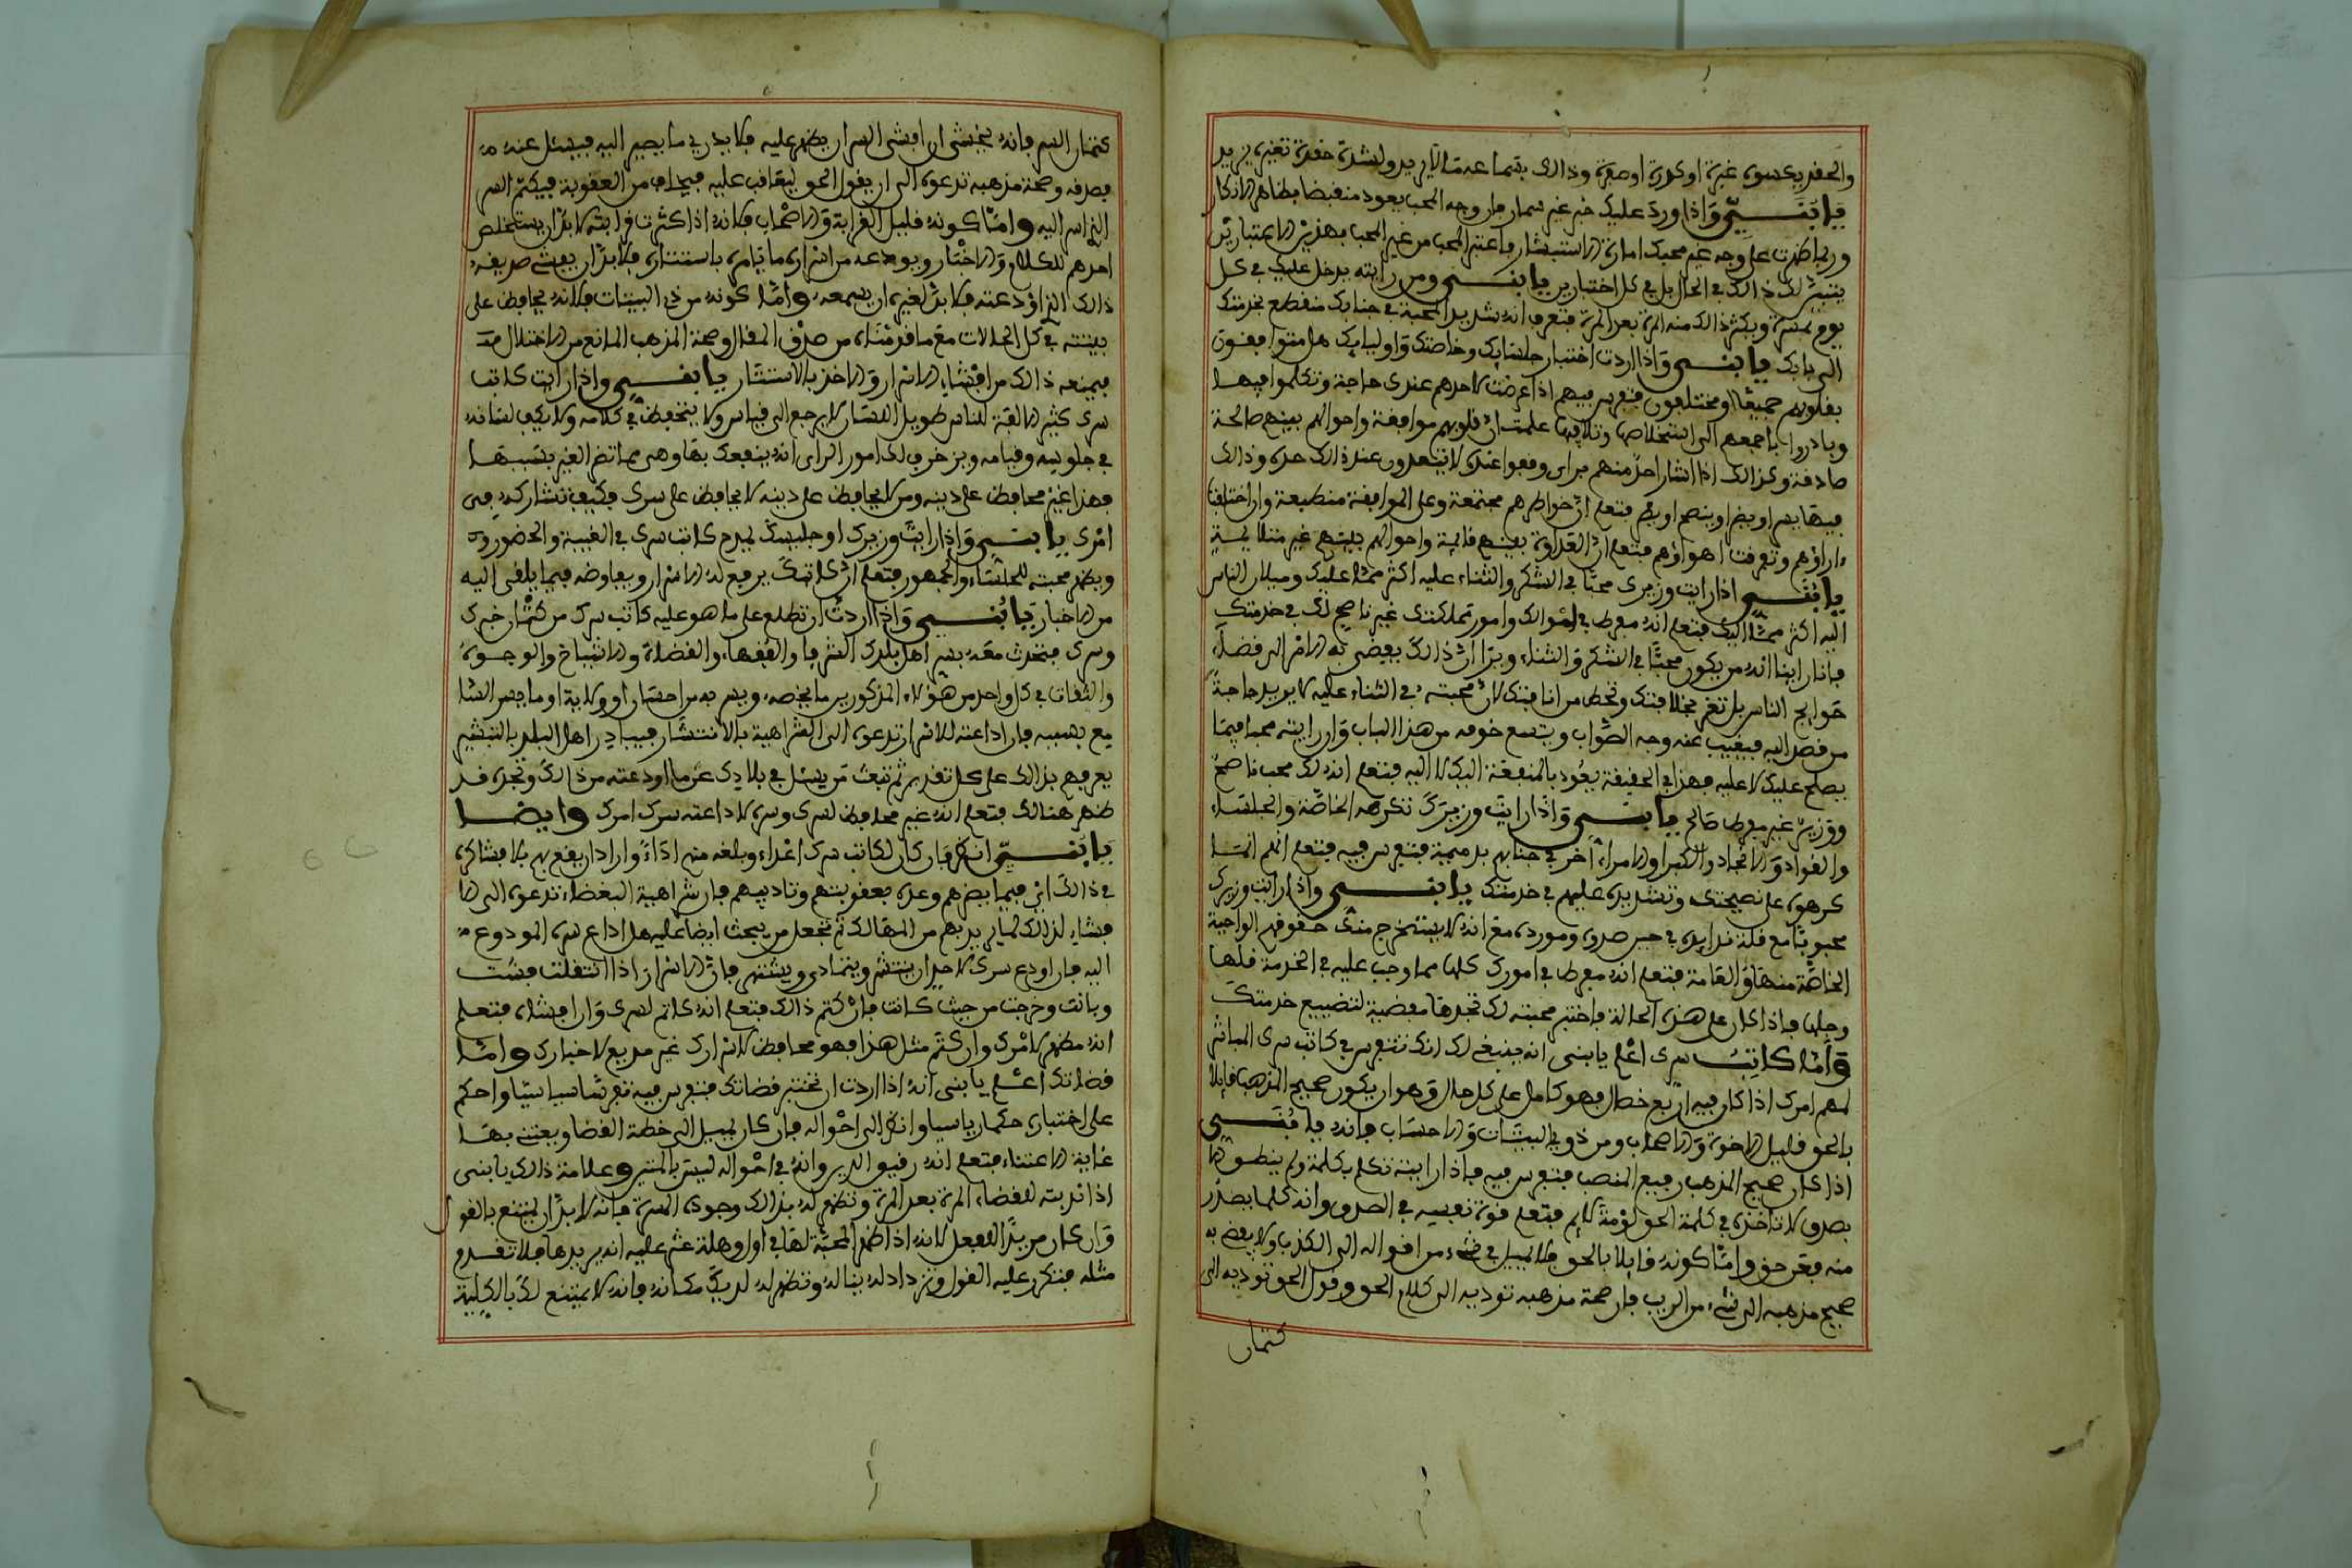 والحقد يكسوه غبرة او كدرة او صفرة وذالك بقدر ما عنده لا يزيد ولشدة حقده تغيره يزيد
يا بني واذا ورد عليك خبر غير سار فان وجه المحب يعود منقبضا بظاهر الانكار
وربما ظهرت على وجه غير محبك امارة الاستبشار فاعتبر المحب من غير المحب بهذين الاعتبارين
يتبين لك ذالك في الحال بل في كل اختبارين يا بني ومن رايته يدخل عليك في كل
يوم بمسرة ويكثر ذالك منه المرة بعد المرة فتعرف انه شديد المحبة في جنابك منقطع بخدمتك
الى بابك يا بني واذا اردت اختبار جلسايك وخاصتك واوليايك هل متوافقون
بقلوبهم جميعا او مختلفون فتفرس فيهم اذا عرضت لاحدهم عندك حاجة وتكلموا فيها
وبادروا باجمعهم الى استخلاصها وتلافيها علمت ان قلوبهم موافقة واحوالهم بينهم صالحة
صادقة وكذالك اذا اشار احد منهم براي وقفوا عنده لا يتعدون عند ذالك حده وذالك
فيما يسر او يضر او ينصح او يغر فتعلم ان خواطرهم مجتمعة وعلى الموافقة منطبعة وان اختلفت
ءاراؤهم وتفرقت اهواؤهم فتعلم ان العداوة بينهم قائمة واحوالهم بينهم غير متلائمة
يا بني اذا رايت وزيرك محبا في الشكر والثناء عليه اكثر مما عليك وميلان الناس
اليه اكثر مما اليك فتعلم انه مفرط في اموالك وامور مملكتك غير ناصح لك في خدمتك
فانا راينا انه من يكون محبا في الشكر والثناء ويرا ان ذالك يفضي به الامر الى قضاء
حوايج الناس بل تغر مخلافتك وتحط من انافتك لان محبته في الثناء عليه لا يريد حاجة
من قصد اليه فيغيب عنه وجه الصواب ويتسع خوفه من هذا الباب وان رايته محبا فيما
يصلح عليك لا عليه فهذا في الحقيقة يعود بالمنفعة اليك لا اليه فتعلم انه لك محب ناصح
ووزيره غير مفرط صالح يا بني واذا رايت وزيرك تكرهه الخاصة والجلساء
والقواد والانجاد والكبرا والامراء اخر في جنابهم بدميمة فتفرس فيه فتعلم انهم انما
كرهوه على نصيحتك وتشديده عليهم في خدمتك يا بني واذا رايت وزيرك
محبوبا مع قلة فوايده في حسن صدره ومورده مع انه لا يستخرج منك حقوقهم الواجبة
الخاصة منها والعامة فتعلم انه مفرط في امورك كلها مما وجب عليه في الخدمة قلها
وجلها فاذا كان على هذه الحالة فاختبر محبته لك تجدها مفضية لتضييع خدمتك
واما كاتب سرك اعلم يا بني انه ينبغي لك انك تتفرس في كاتب سرك المباشر
لمهم امرك اذا كان فيه اربع خصال فهو كامل على كل حال وهو ان يكون صحيح المذهب قايلا
بالحق قليل الاخوة والاصحاب ومن ذوي البيتات والاحساب فانه يا بني
اذا كان صحيح المذهب رفيع المنصب فتفرس فيه فاذا رايته تكلم بكلمة ولم ينطق الا
بصدق لا تاخذه في كلمة الحق لومة لايم فتعلم قوة نفسه في الصدق وانه كلما يصدر
منه فعن حق واما كونه قايلا بالحق فلا يميل في شيء من اقواله الى الكذب ولا يفضي به
صحيح مذهبه الى شيء من الريب فان صحة مذهبه توديه الى كلام الحق وقول الحق توديه الى
كتمان
كتمان السر فانه يخشى ان افشى السر ان يظهر عليه فلا يدري ما يصير اليه فيسئل عنه
فصدقه وصحة مذهبه تدعوه الى ان يقول الحق ليعاقب عليه فيخاف من العقوبة فيكتم السر
الذي اسر اليه واما كونه قليل القرابة والاصحاب فلانه اذا كثرت قرابته لا بد ان يستخلص
احدهم للكلام والاختار ويودعه من اسراره ما يامره باستتاره فلا بد ان يفشي صديقه
ذالك الذي اودعته فلا بد لغيره ان يسمعه واما كونه من ذوي البيتات فلانه يحافظ على
بيتته في كل الحالات مع ما قدمناه من صدق المقال وصحة المذهب المانع من الاختلال
فيمنعه ذالك من افشاء الاسرار والاخذ بالاستتار يا بني واذا رايت كاتب
سرك كثير الالفة للناس طويل اللسان لا يرجع الى قياس ولا يتحفظ في كلامه ولا يكف لسانه
في جلوسه وقيامه ويزخرف لك امور الراي انه ينفعك بها وهي مما تضر الغير بسببها
فهذا غير محافظ على دينه ومن لا يحافظ على دينه لا يحافظ على سرك فكيف تشاركه في
امرك يا بني واذا رايت وزيرك او جليسك يمدح كاتب سرك في الغيبة والحضور
ويظهر محبته للجلساء والجمهور فتعلم ان كاتبك يرفع له الاسرار ويفاوضه فيما يلقى اليه
من الاخبار يا بني واذا اردت ان تطلع على ما هو عليه كاتب سرك من كتمان خبرك
وسرك فتحدث معه بسر اهل بلدك الشرفا والفقهاء والفضلاء والاشياخ والوجوه
والثقات في كل واحد من هؤلاء المذكورين ما يخصه ويسر به من احسان او ولاية او ما يسر السا
مع بسببه فان اذاعته للاسرار تدعوه الى الشراهية بالانتشار فيبادر اهل البلد بالتبشير
يعرفهم بذالك على كل تقدير ثم تبعث من يسئل في بلادك عن ما اودعته من ذالك وتجده قد
ظهر هنالك فتعلم انه غير محافظ لسرك وسره لاذاعته سرك امرك وايضا
يا بني انظر فان كان لكاتب سرك اعداء وبلغه منهم اذاء وارادا ان يقع بهم فلا فشاكره
في ذالك اي فيما يضرهم وعده بعقوبتهم وتاديبهم فان شراهية البغضاء تدعوه الى الا
فشاء لذالك لما يريد بهم من المهالك ثم تجعل من يبحث ايضا عليه هل اذاع سره المودوع
اليه فان اودع سرك لاحد ان ينتشر ويتمادى ويشتهر فان الاسرار اذا انتقلت فشت
وبانت وخرجت من حيث كانت فان كتم ذالك فتعلم انه كاتم لسرك وان افشاه فتعلم
انه مظهر لامرك وان كتم مثل هذا فهو محافظ لاسرارك غير مذيع لاخبارك واما
قضاتك اعلم يا بني انه اذا اردت ان تختبر قضاتك فتفرس فيه تفرسا سياسيا واحكم
على اختباره حكما رياسيا وانظر الى احواله فان كان يميل الى خطة القضا ويعتني بها
غاية الاعتناء فتعلم انه رقيق الدين وانه في احواله ليس بالمتين وعلامة ذالك يا بني
اذا ندبته للقضاء المرة بعد المرة وتظهر له بذالك وجوه المسرة فانه لا بد ان يمتنع بالقول
وان كان مريدا للفعل لانه اذا اظهر المحبة لها في اول وهلة عثر عليه انه يريدها فلا تقدم
مثله فتكرر عليه القول وتزداد له بيناله وتظهر له لديك مكانه فانه لا يمتنع لك بالكلية